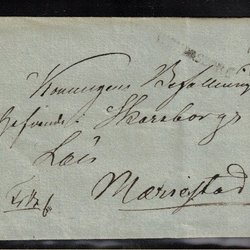 Konungens Befallning
hafvande i Skaraborgs
Län
Mariestad